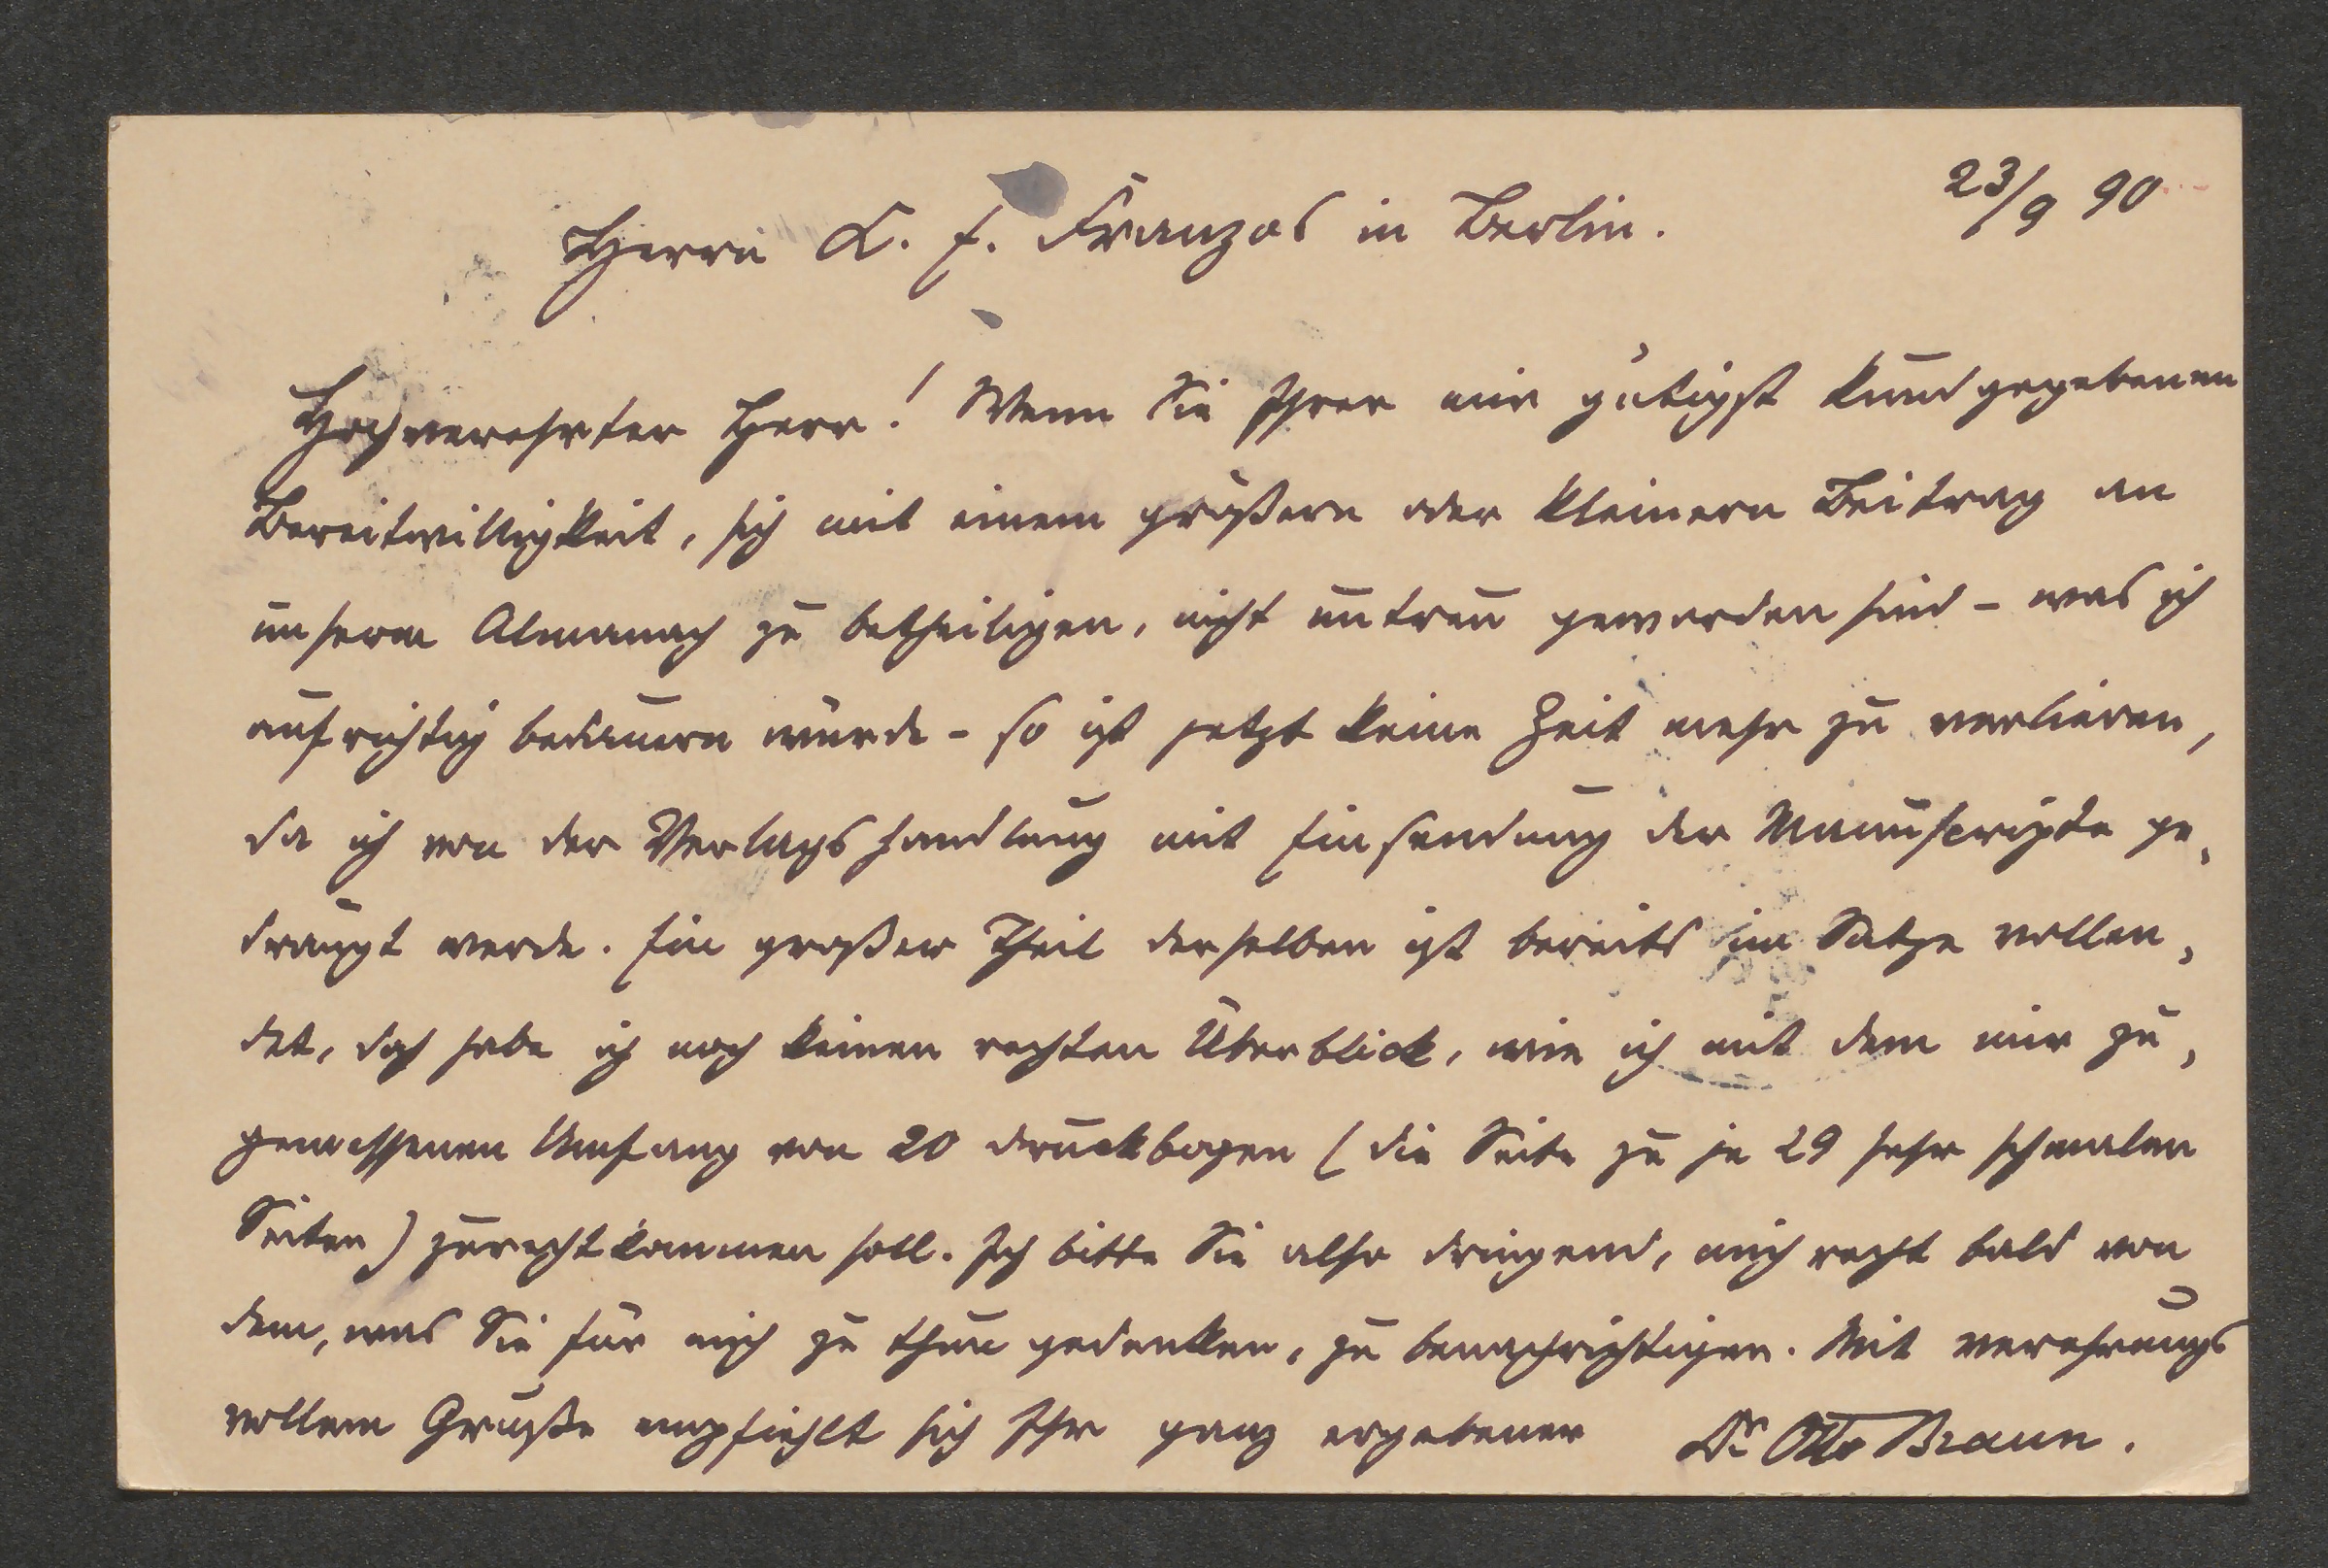 23/9 90
Herrn K. E. Franzos in Berlin.
Hochverehrter Herr! Wenn Sie Ihrer mir gütigst kundgegebenen
Bereitwilligkeit, sich mit einem größern oder kleinern Beitrag an
unserm Almanach zu betheiligen, nicht untreu geworden sind – was ich
aufrichtig bedauern würde – so ist jetzt keine Zeit mehr zu verlieren,
da ich von der Verlagshandlung mit Einsendung der Manuscripte ge-
drängt werde. Ein großer Theil derselben ist bereits im Satze vollen-
det, doch habe ich noch keinen rechten Überblick, wie ich mit dem mir zu-
gemessenen Umfang von 20 Druckbogen (die Seite zu je 29 sehr schmalen
Seiten) zurechtkommen soll. Ich bitte Sie also dringend, mich recht bald von
dem, was Sie für mich zu thun gedenken, zu benachrichtigen. Mit verehrungs
vollem Gruße empfiehlt sich Ihr ganz ergebener Dr Otto Braun.